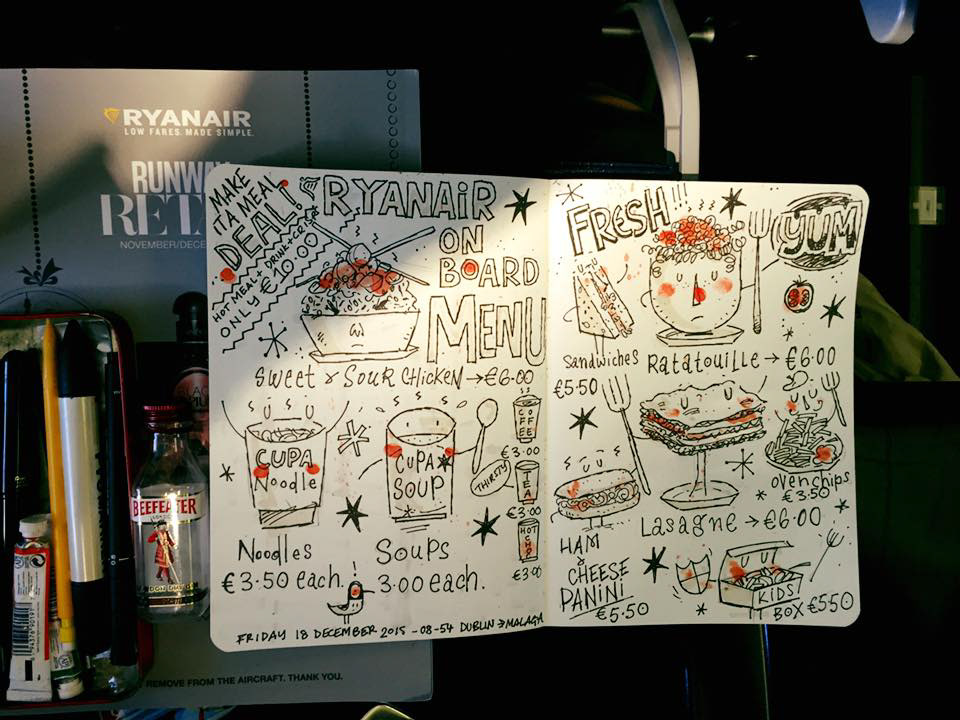 RYANAIR
LOW FARES. MADE SIMPLE.
RUNWAY
RETA
NOVEMBER/DECE
BEEFEATER
LONDON
REMOVE FROM THE AIRCRAFT. THANK YOU.
MAKE
IT A MEAL
DEAL!
HOT MEAL + DRINK + CRISPS
ONLY €10.00
RYANAIR
ON
BOARD
MENU
SWEET & SOUR CHICKEN → €6.00
CUPA
Noodle
CUPA
SOUP
THIRSTY
COFFEE
€3.00
TEA
€3.00
HOT CHO
€3.00
Noodles
€3.50 each.
Soups
3.00 each.
FRIDAY 18 DECEMBER 2015 - 08-54 DUBLIN → MALAGA
FRESH!!!
YUM
Sandwiches
€5.50
Ratatouille → €6.00
oven chips
€3.50
Lasagne → €6.00
HAM
& CHEESE
PANINI
€5.50
KIDS
BOX €550